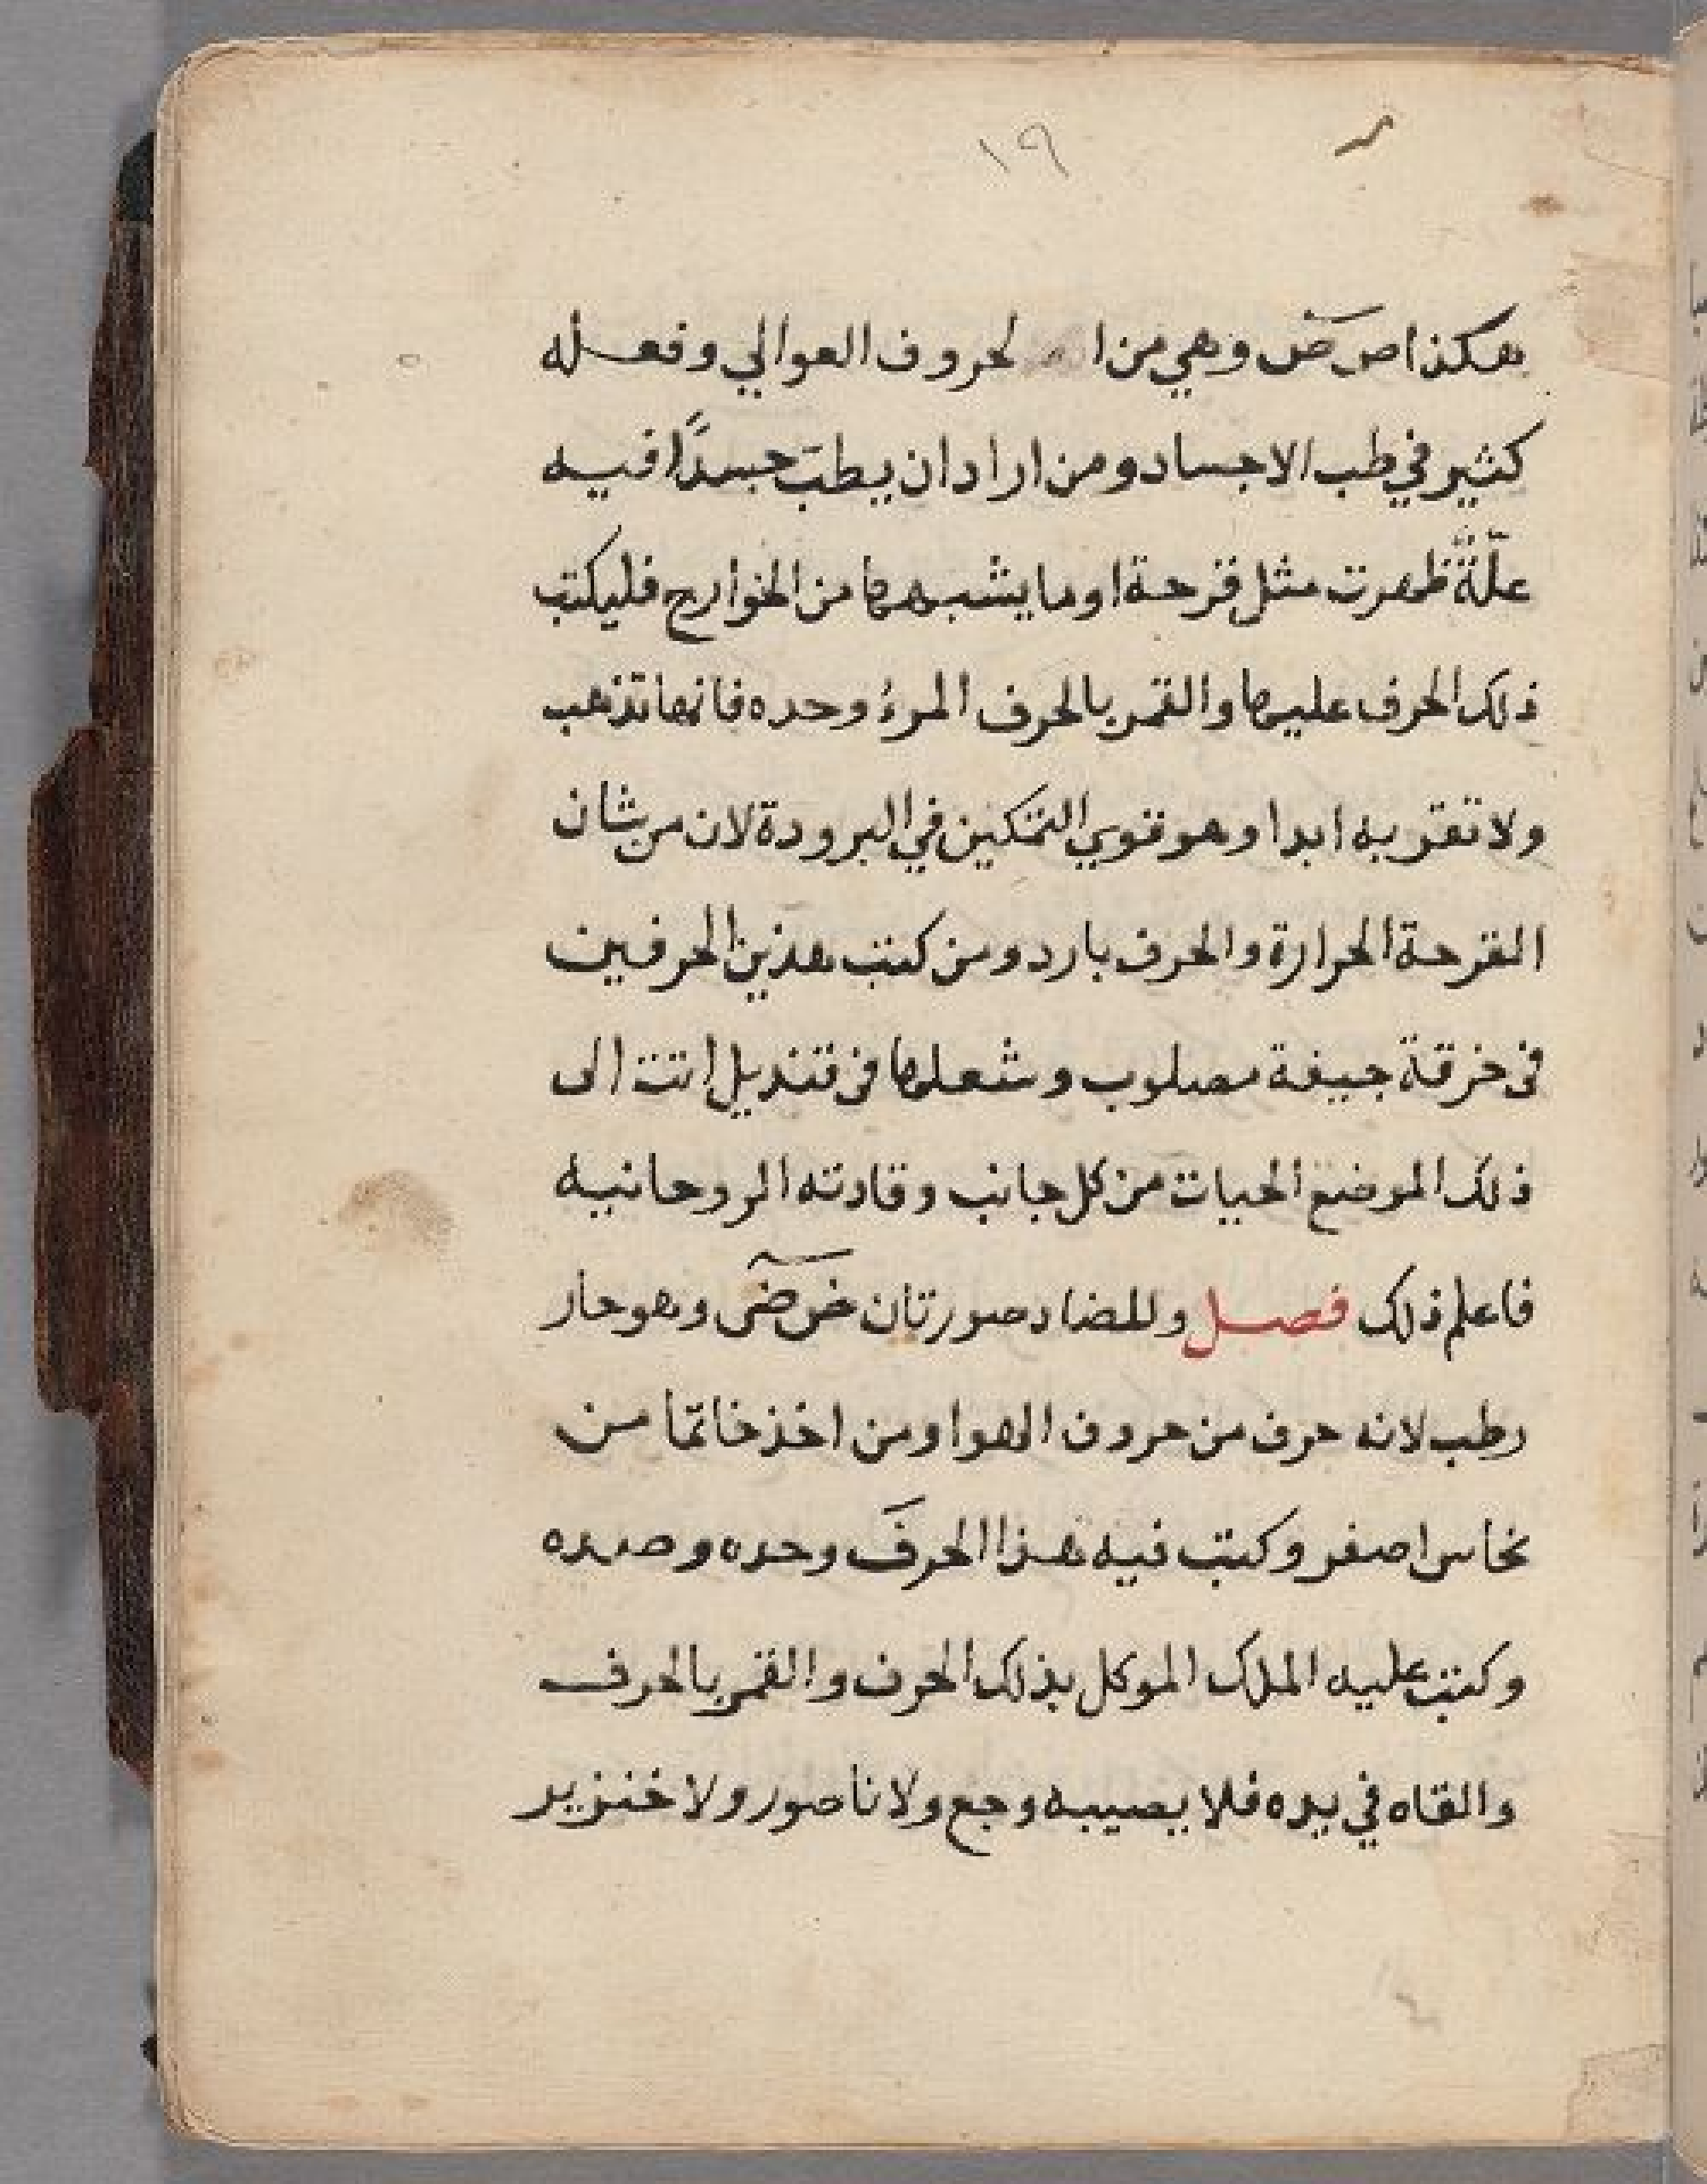 ١٩
هكذا ص ص وهي من الحروف العوالي وفعله
كثير في طب الاجساد ومن اراد ان يطبَ جسدًا فيه
علّةٌ ظهرت مثل قرحة او ما يشبهها من الخوارج فليكتب
ذلك الحرف عليها والقمر بالحرف المرءُ وحده فانها تذهب
ولا تقربه ابدا وهو قوي التمكين في البرودة لان من شان
القرحة الحرارة والحرف بارد ومن كتب هذين الحرفين
في خرقة جيفة مصلوب وشعلها في قنديل اتت الى
ذلك الموضع الحيات من كل جانب وقادته الروحانيه
فاعلم ذلك فصل وللضاد صورتان ض ض وهو حار
رطب لانه حرف من حروف الهوا ومن اخذ خاتما من
نحاس اصفر وكتب فيه هذا الحرفَ وحده و
وكتب عليه الملك الموكل بذلك الحرف والقمر بالحرف
والقاه في يده فلا يصيبه وجع ولا ناصور ولا خنزير